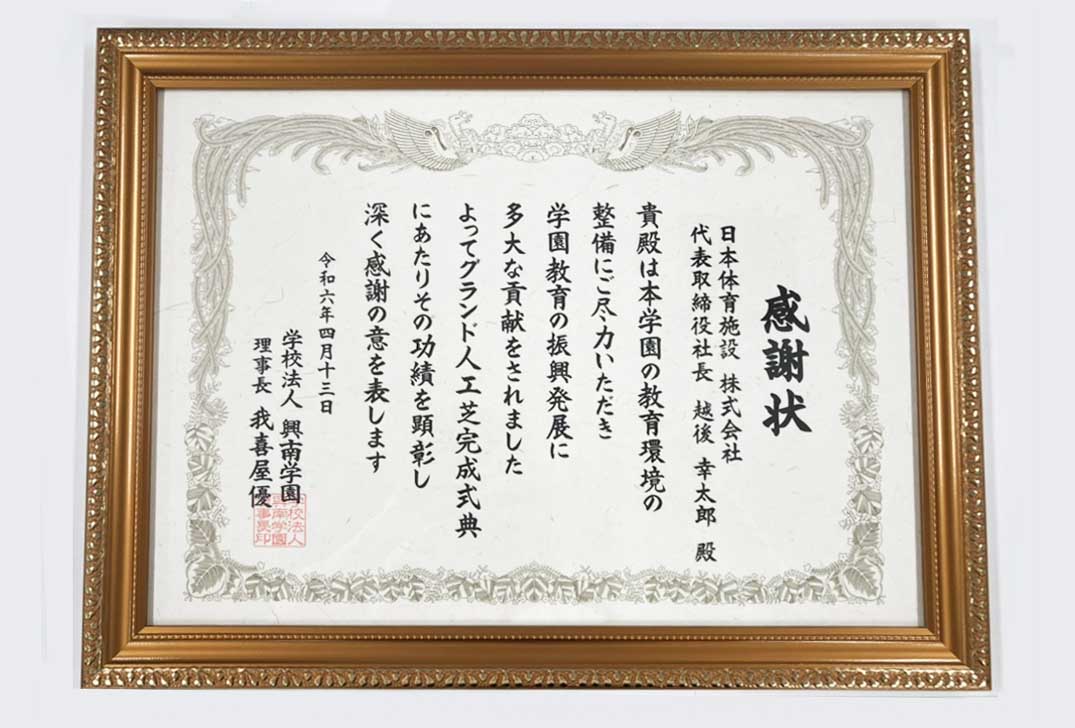 感謝状
日本体育施設 株式会社
代表取締役社長 越後 幸太郎 殿
貴殿は本学園の教育環境の
整備にご尽力いただき
学園教育の振興発展に
多大な貢献をされました
よってグランド人工芝完成式典
にあたりその功績を顕彰し
深く感謝の意を表します
令和六年四月十三日
学校法人 興南学園
理事長 我喜屋 優
学校法人
興南学園
理事長印